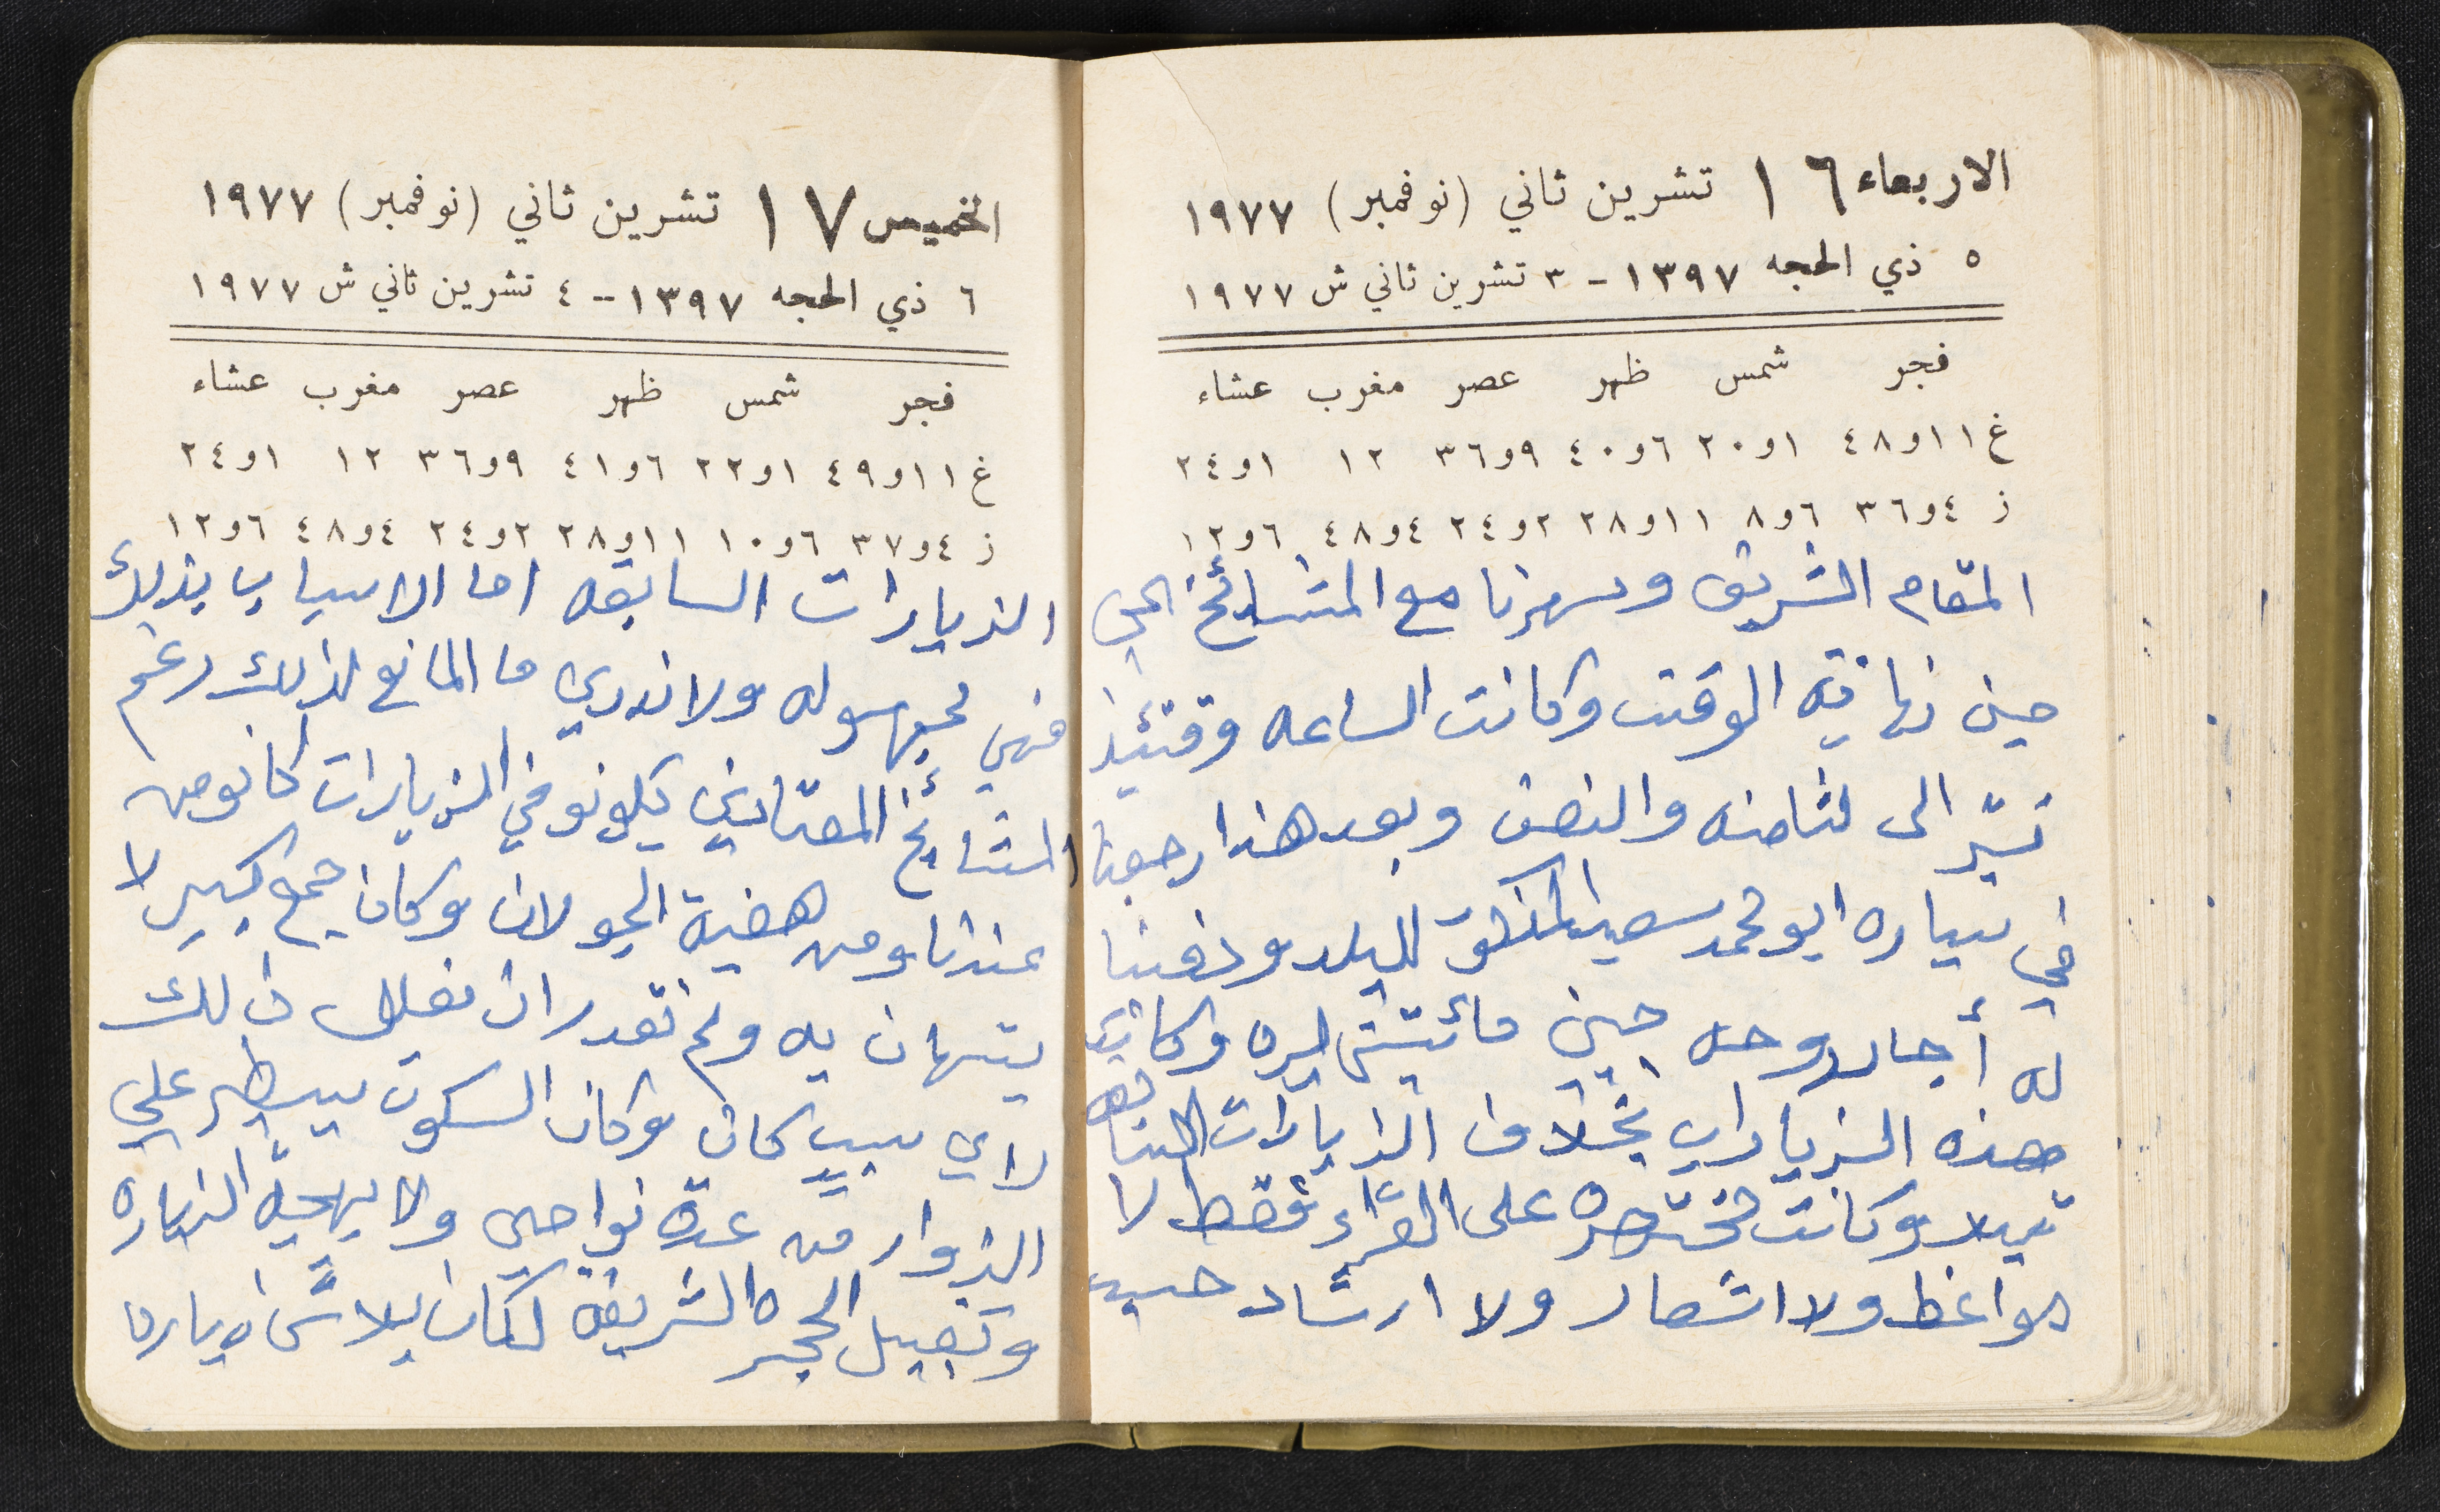 الاربعاء ١٦ تشرين ثاني (نوفمبر) ١٩٧٧
٥ ذي الحجه ١٣٩٧ - ٣ تشرين ثاني ش ١٩٧٧
فجر شمس ظهر عصر مغرب عشاء
غ ١١و٤٨ ١و٢٠ ٦و٤٠ ٩و٣٦ ١٢ ١و٢٤
ز ٤و٣٦ ٦و٨ ١١و٢٨ ٢و٢٤ ٤و٤٨ ٦و١٢
المقام الشريف وسهرنا مع المشائخ الى
حين نهاية الوقت وكانت الساعه وقتئيذ
تشير الى لثامنه والنصف وبعد هذا رجعنا
في سياره ابو محمد سعيد المذكور للبلد ودفعنا
له أجار روحه جيئ مائيتي ليره وكانت
هذه الزيارات بخلاف الزيارات السابقه
قبيلا وكانت مختصره على القراء فقط لا
مواعظ ولا اشعار ولا ارشاد حسب
الخميس ١٧ تشرين ثاني (نوفمبر) ١٩٧٧
٦ ذي الحجه ١٣٩٧ - ٤ تشرين ثاني ش ١٩٧٧
فجر شمس ظهر عصر مغرب عشاء
غ ١١و٤٩ ١و٢٢ ٦و٤١ ٩و٣٦ ١٢ ١و٢٤
ز ٤و٣٧ ٦و١٠ ١١و٢٨ ٢و٢٤ ٤و٤٨ ٦و١٢
الزيارات السابقه اما الاسباب بذلك
فهي مجهوله ولا ندري ما المانع لذلك رغم
المشائخ المعتادين يكونو في الزيارات كانو من
عندنا ومن هضبة الجولان وكان جمع كبير لا
يتسهان به ولم نقدر ان نعلل ذلك
لاي سببٍ كان وكان السكوت يسيطر على
الزوار من عدة نواحي ولا بهجة الزياره
وتقبيل الحجره الشريفه لكان بلاش زياره